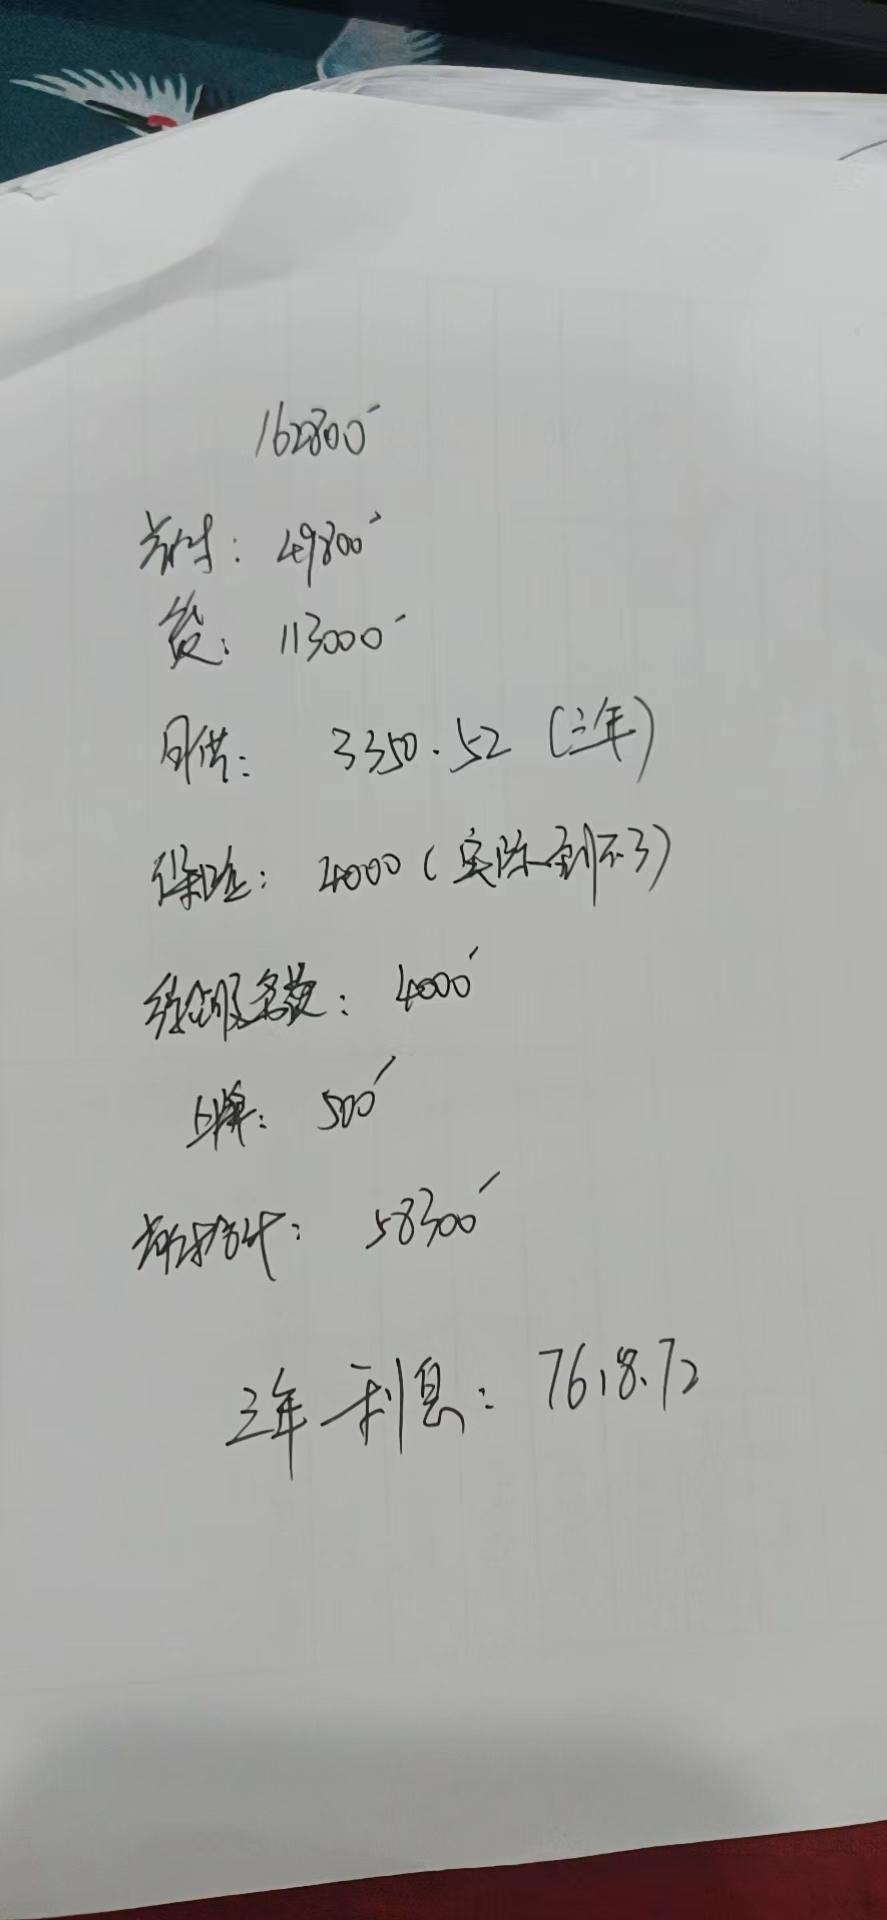 162800
首付：49800
贷：113000
月供：3350.52（三年）
保险：4000（实际到不了）
综合服务费：4000
上牌：500
首付合计：58300
三年利息：7618.72